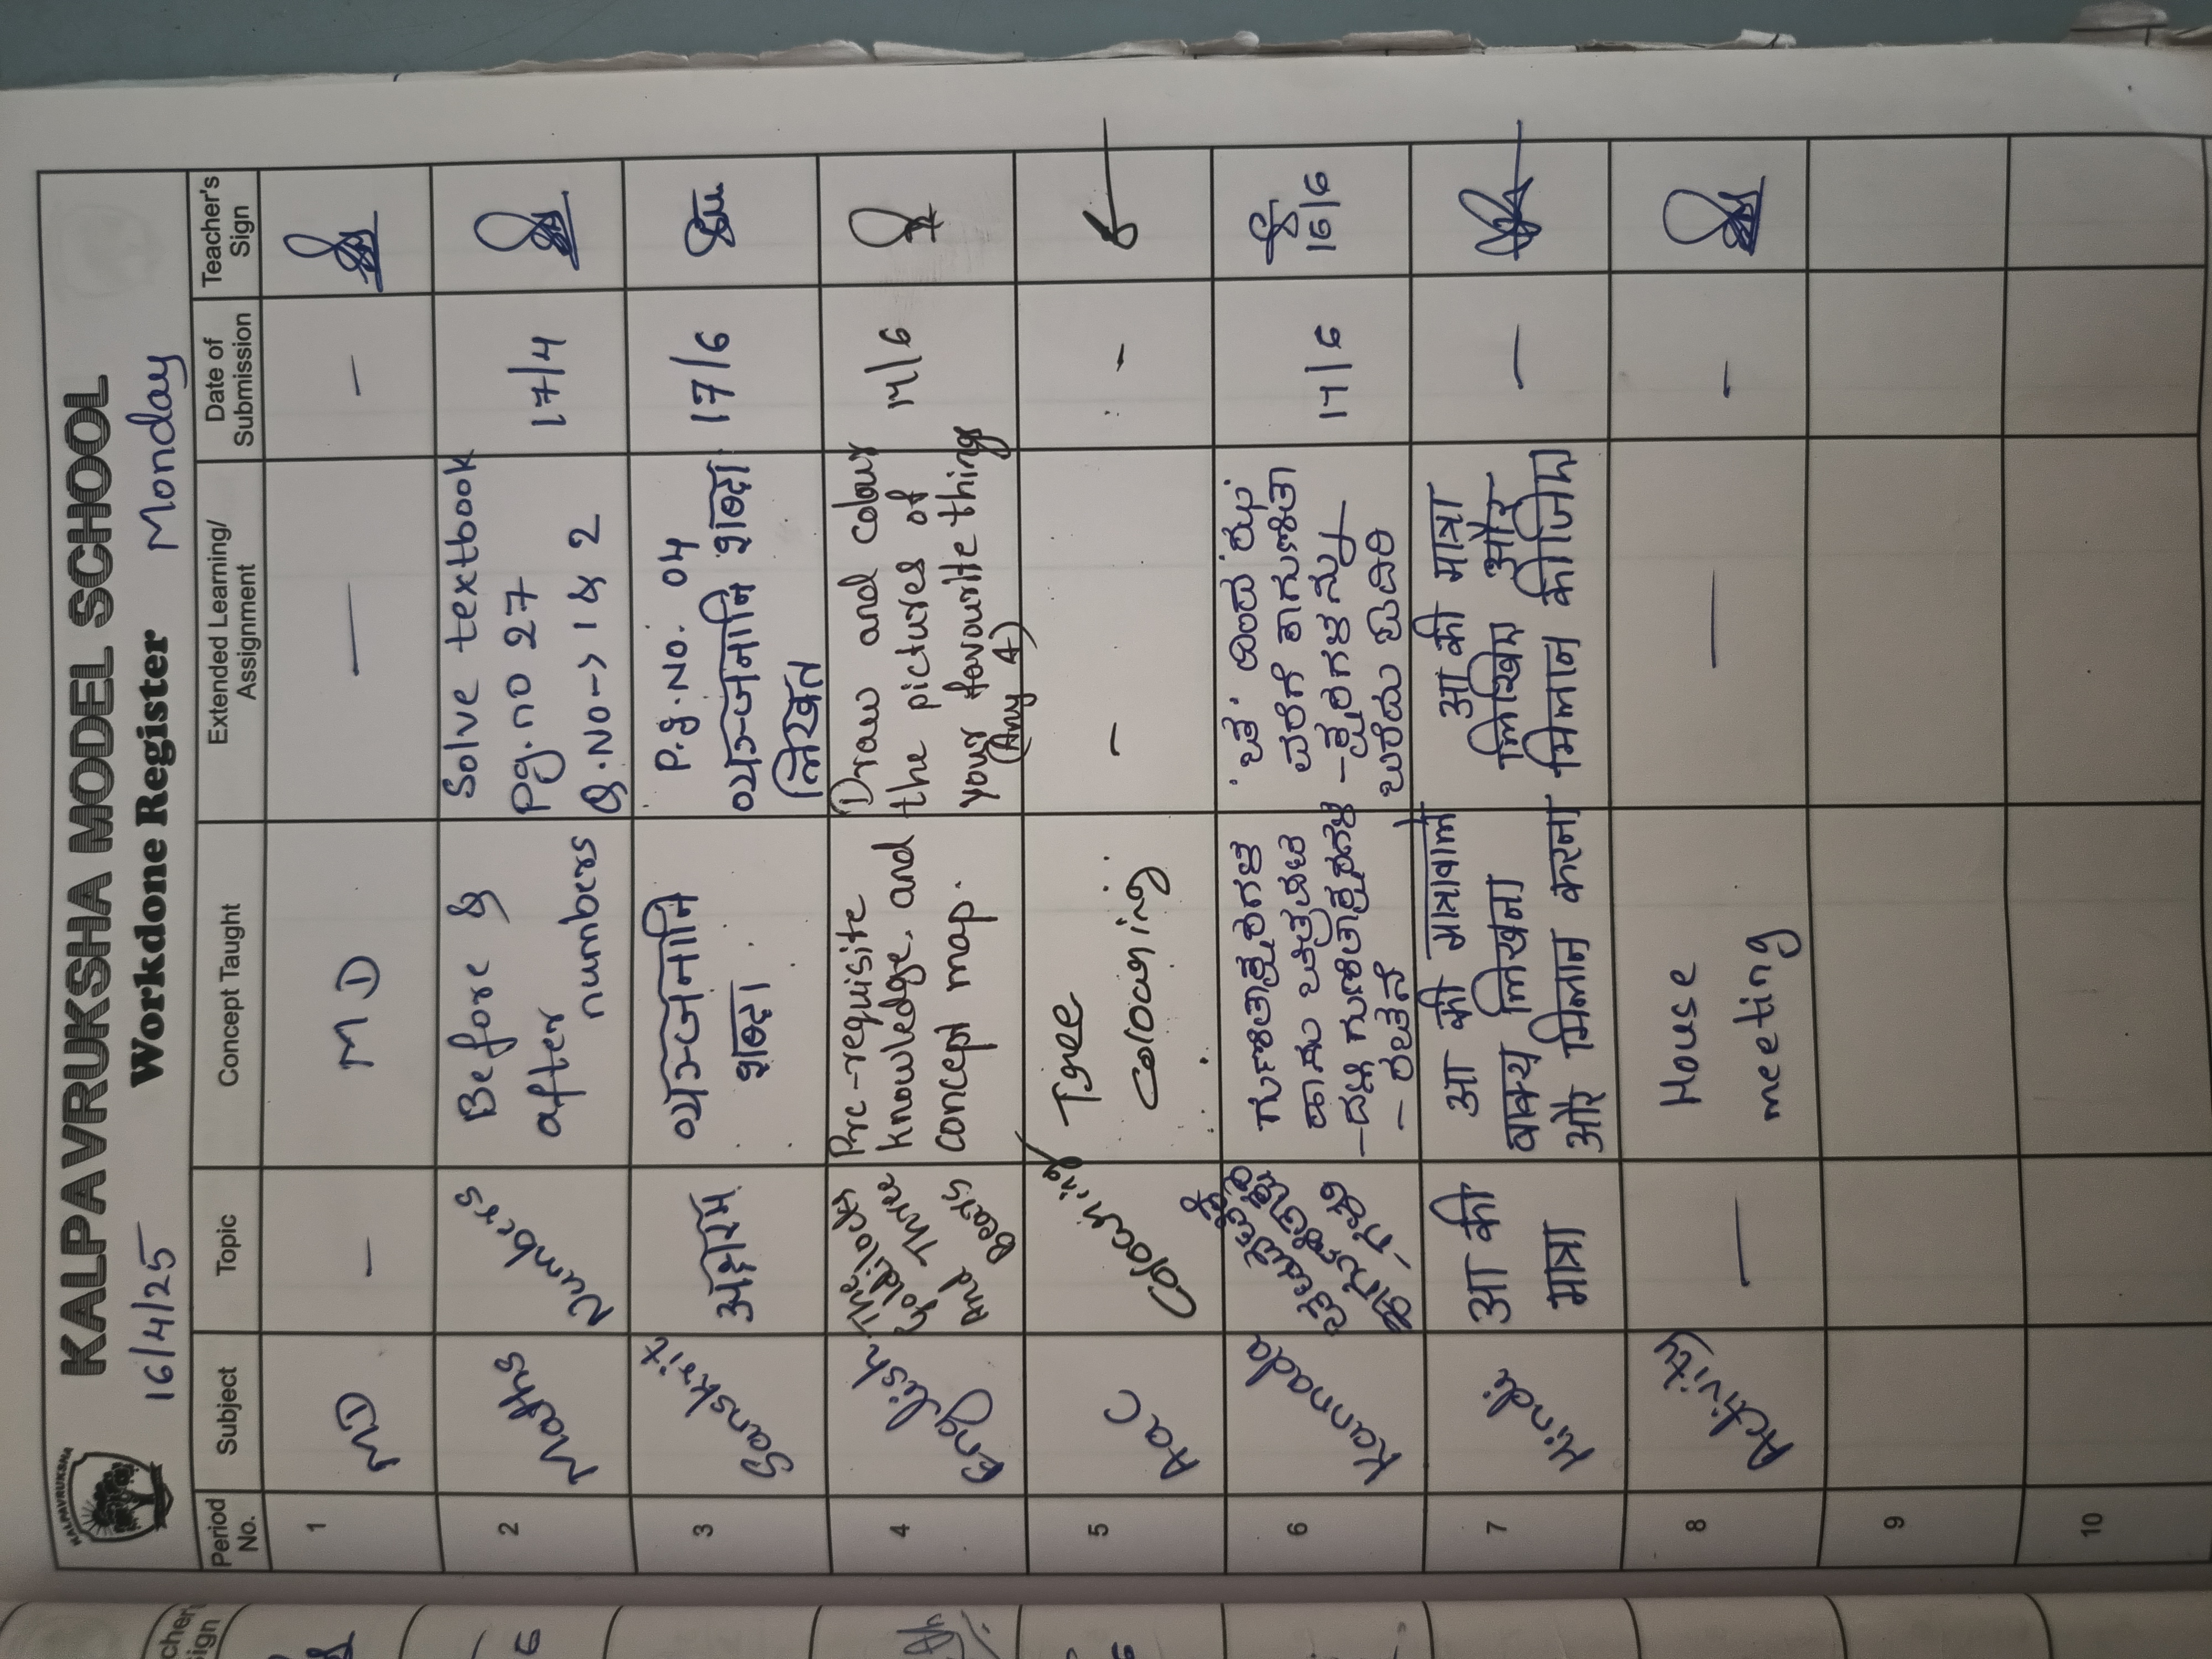 KALPAVRUKSHA
KALPAVRUKSHA MODEL SCHOOL
16/4/25 Workdone Register Monday
Period No. Subject Topic Concept Taught Extended Learning/ Assignment Date of Submission Teacher's Sign
1 MD — MD — —
2 Maths Numbers Before & after numbers Solve textbook Pg.no 27 Q.No -> 1 & 2 17/4
3 Sanskrit व्यञ्जनानि शब्दा P.g.No. 04 व्यञ्जनानि शब्दा लिखत 17/6
4 English The Goldilocks And Three Bears Pre-requisite knowledge, and concept map. Draw and colour the pictures of your favourite thing (Any 4) 17/6
5 Aac Colouring Tree colouring - -
6 Kannada 17/6 16/6
7 Hindi आ की मात्रा आ की मात्रावाले वाक्य लिखना और मिलान करना आ की मात्रा लिखिए और मिलान कीजिए —
8 Activity — House meeting — -
9
10